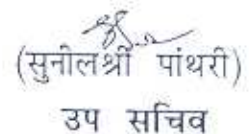 (सुनीलश्री पांथरी)
उप सचिव